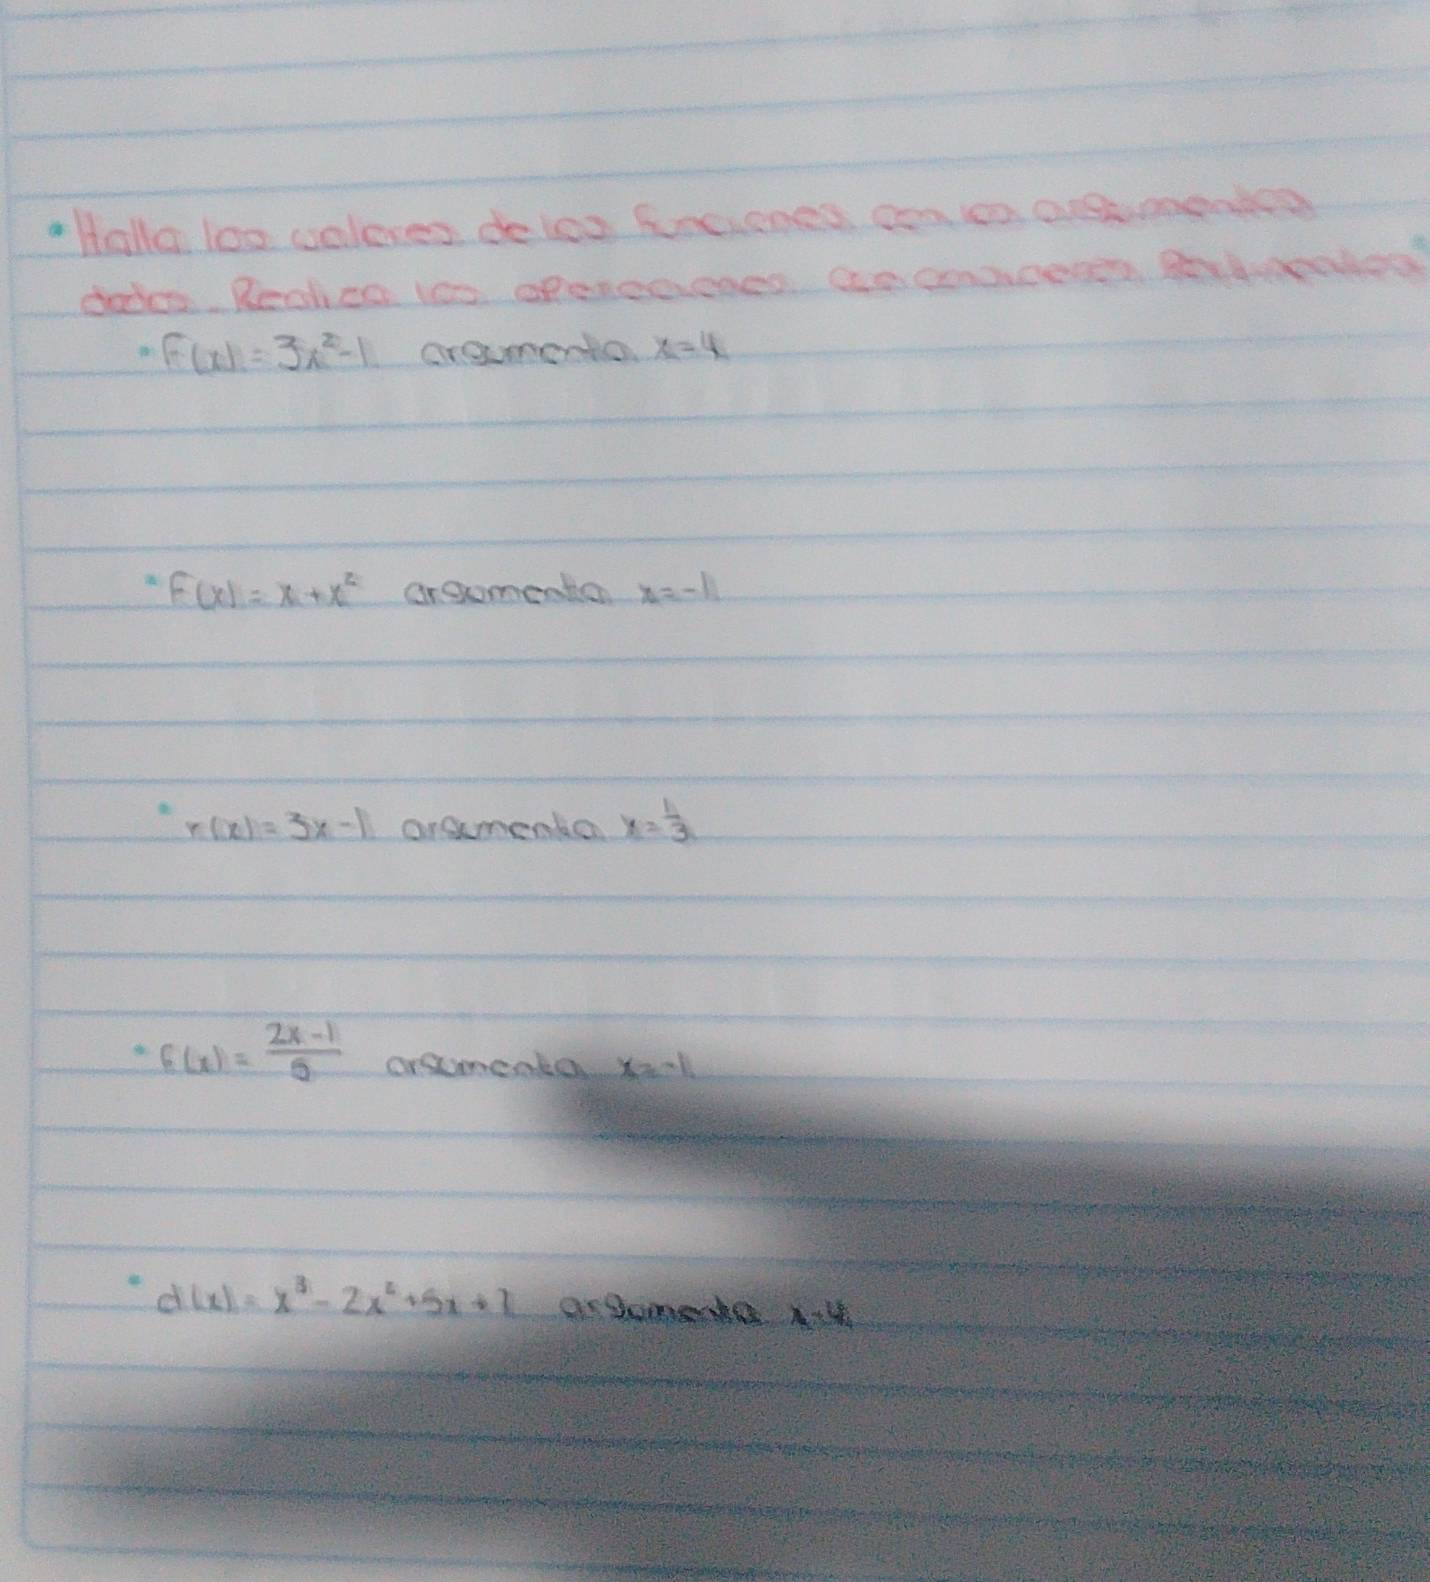 • Halla los valores de las funciones con los argumentos
dados. Realice las operaciones
• F(x) = 3x²-1 argumento x=4
• F(x) = x+x² argumento x=-1
• r(x) = 3x-1 argumento x=1/3
• f(x) = (2x-1)/5 argumento x=-1
• d(x) = x³-2x²+5x+1 argumento x=4